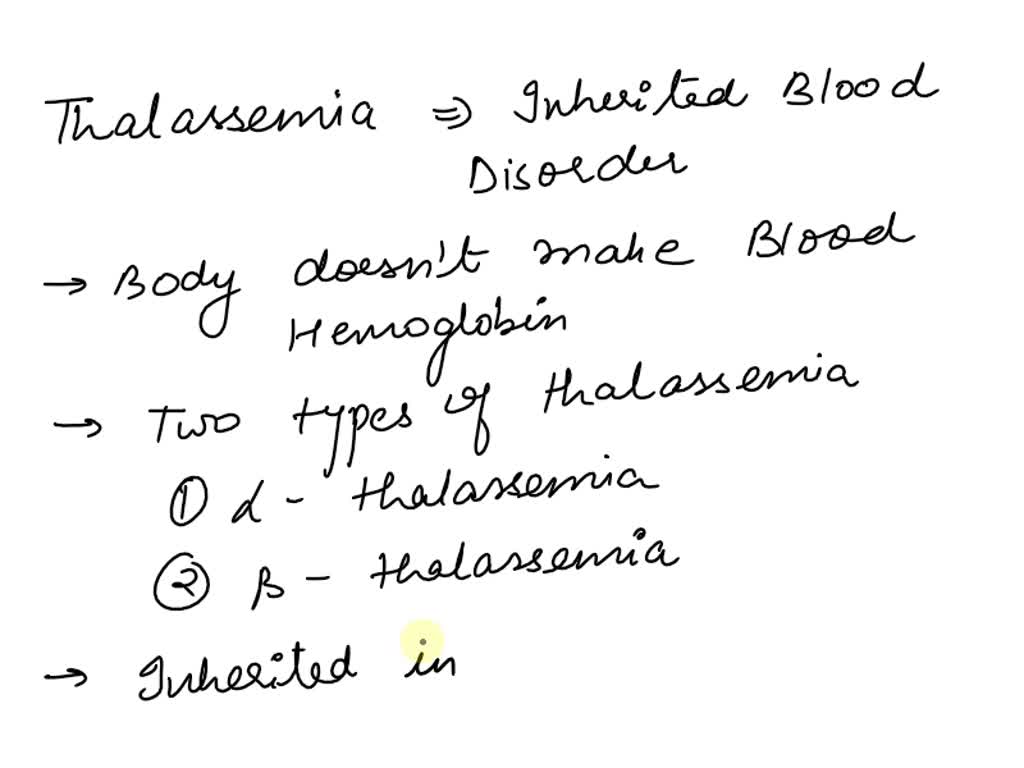 Thalassemia ⇒ Inherited Blood
Disorder
→ Body doesn't make Blood
Hemoglobin
→ Two types of thalassemia
① α - thalassemia
② β - thalassemia
→ Inherited in